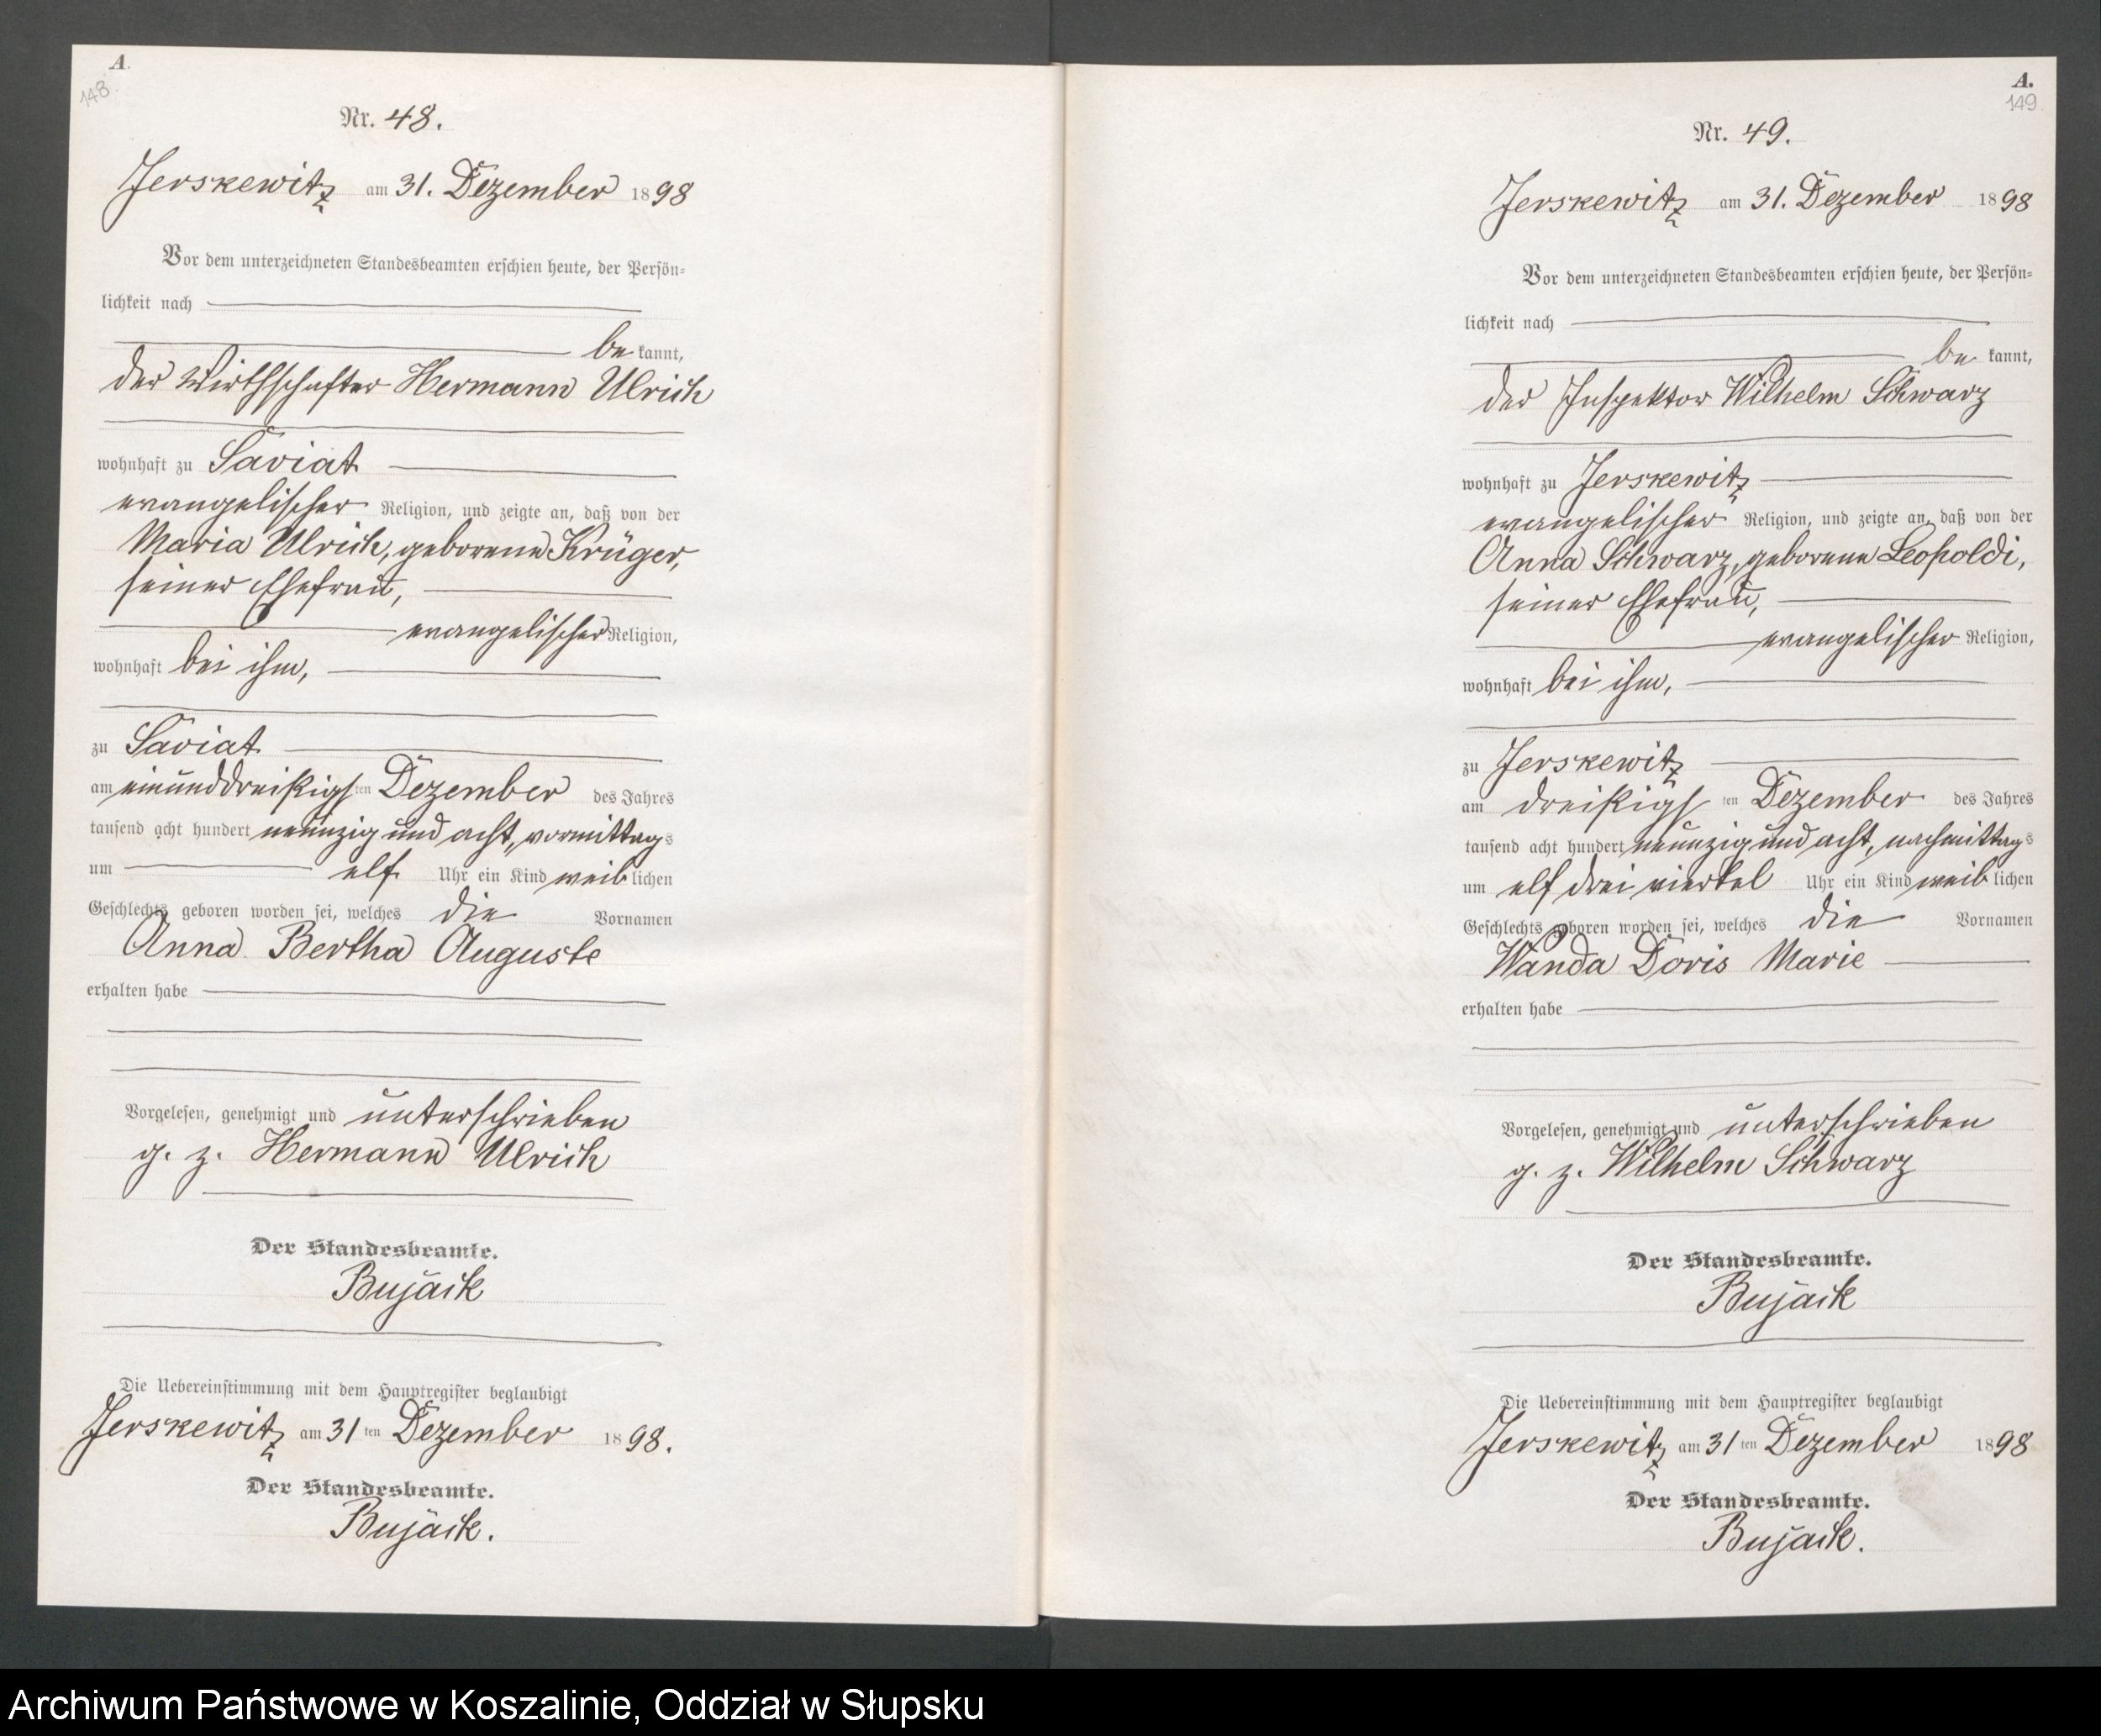 A.
148
Nr. 48.
Jerskewitz am 31. Dezember 1898
Vor dem unterzeichneten Standesbeamten erschien heute, der Persön=
lichkeit nach
be kannt,
der Wirthschafter Hermann Ulrich
wohnhaft zu Saviat
evangelischer Religion, und zeigte an, daß von der
Maria Ulrich, geborene Krüger,
seiner Ehefrau,
evangelischer Religion,
wohnhaft bei ihm,
zu Saviat
am einunddreißigsten Dezember des Jahres
tausend acht hundert neunzig und acht, vormittags
um elf Uhr ein Kind weiblichen
Geschlechts geboren worden sei, welches die Vornamen
Anna Bertha Auguste
erhalten habe
Vorgelesen, genehmigt und unterschrieben
g. z. Hermann Ulrich
Der Standesbeamte.
Bujack
Die Uebereinstimmung mit dem Hauptregister beglaubigt
Jerskewitz am 31ten Dezember 1898.
Der Standesbeamte.
Bujack.
A.
149
Nr. 49.
Jerskewitz am 31. Dezember 1898
Vor dem unterzeichneten Standesbeamten erschien heute, der Persön=
lichkeit nach
be kannt,
der Inspektor Wilhelm Schwarz
wohnhaft zu Jerskewitz
evangelischer Religion, und zeigte an, daß von der
Anna Schwarz, geborene Leopoldi,
seiner Ehefrau,
evangelischer Religion,
wohnhaft bei ihm,
zu Jerskewitz
am dreißigsten Dezember des Jahres
tausend acht hundert neunzig und acht, nachmittags
um elf drei viertel Uhr ein Kind weiblichen
Geschlechts geboren worden sei, welches die Vornamen
Wanda Doris Marie
erhalten habe
Vorgelesen, genehmigt und unterschrieben
g. z. Wilhelm Schwarz
Der Standesbeamte.
Bujack
Die Uebereinstimmung mit dem Hauptregister beglaubigt
Jerskewitz am 31ten Dezember 1898
Der Standesbeamte.
Bujack.
Archiwum Państwowe w Koszalinie, Oddział w Słupsku